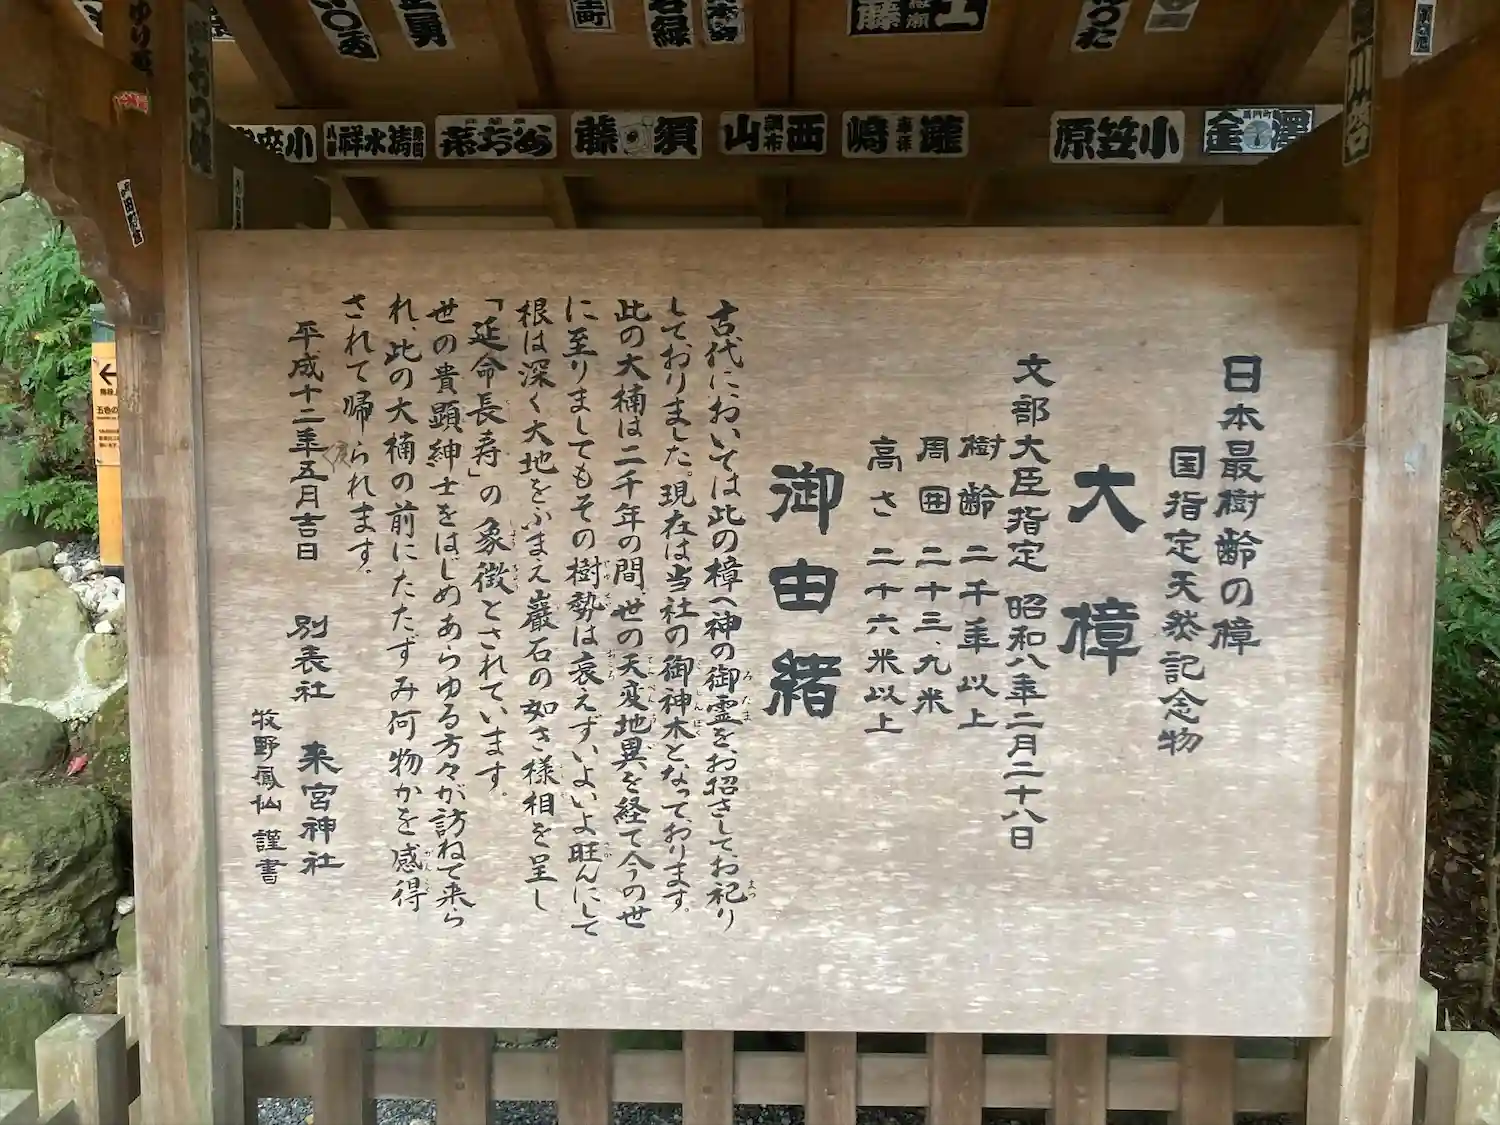 日本最樹齢の樟
国指定天然記念物
大樟
文部大臣指定 昭和八年二月二十八日
樹齢 二千年以上
周囲 二十三、九米
高さ 二十六米以上
御由緒
古代においては此の樟へ神の御霊をお招きしてお祀り
しておりました。現在は当社の御神木となっております。
此の大楠は二千年の間、世の天変地異を経て今の世
に至りましてもその樹勢は衰えず、いよいよ旺んにして
根は深く大地をふまえ巌石の如き様相を呈し
「延命長寿」の象徴とされています。
世の貴顕紳士をはじめあらゆる方々が訪ねて来ら
れ、此の大楠の前にたたずみ何物かを感得
されて帰られます。
平成十二年五月吉日 別表社 来宮神社
牧野鳳仙 謹書
小笠原
瀧嶋
西山
調布
須藤
めおち菜
小笠